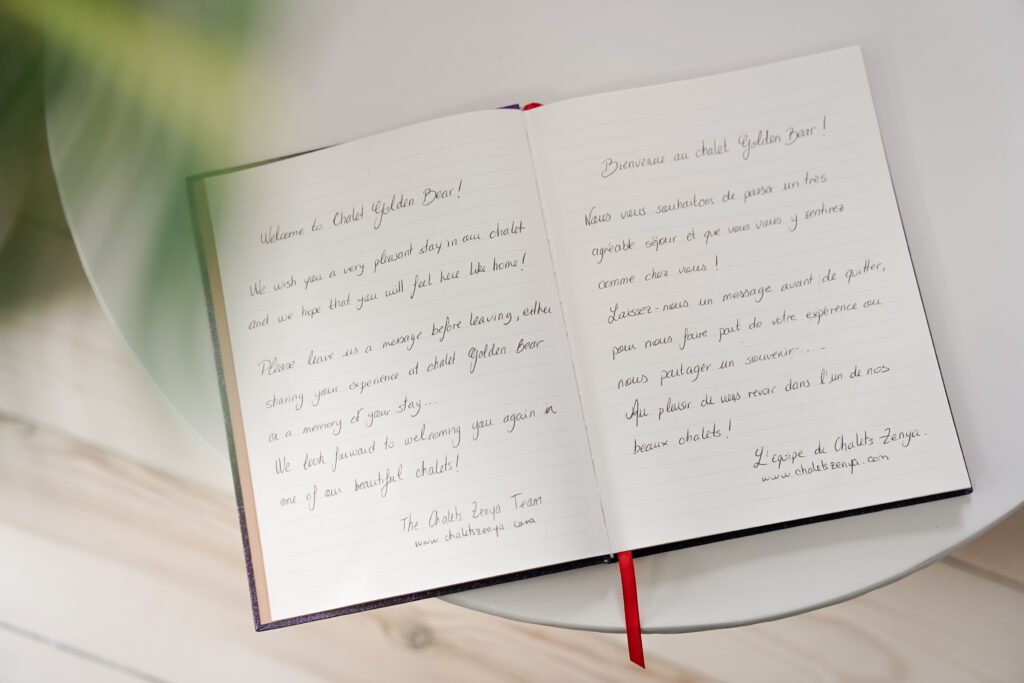 Welcome to Chalet Golden Bear!
We wish you a very pleasant stay in our chalet
and we hope that you will feel here like home!
Please leave us a message before leaving, either
sharing your experience at chalet Golden Bear
or a memory of your stay...
We look forward to welcoming you again in
one of our beautiful chalets!
The Chalets Zenya Team
www.chaletszenya.com
Bienvenue au chalet Golden Bear!
Nous vous souhaitons de passer un très
agréable séjour et que vous vous y sentirez..
comme chez vous!
Laissez-nous un message avant de quitter,
pour nous faire part de votre expérience ou
nous partager un souvenir....
Au plaisir de vous revoir dans l'un de nos
beaux chalets!
L'équipe de Chalets Zenya.
www.chaletszenya.com